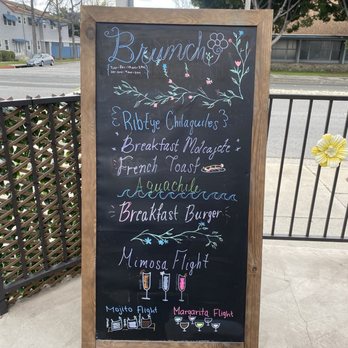 Brunch
RibEye Chilaquiles
Breakfast Molcajete
French Toast
Aguachile
Breakfast Burger
Mimosa Flight
Mojito Flight
Margarita Flight